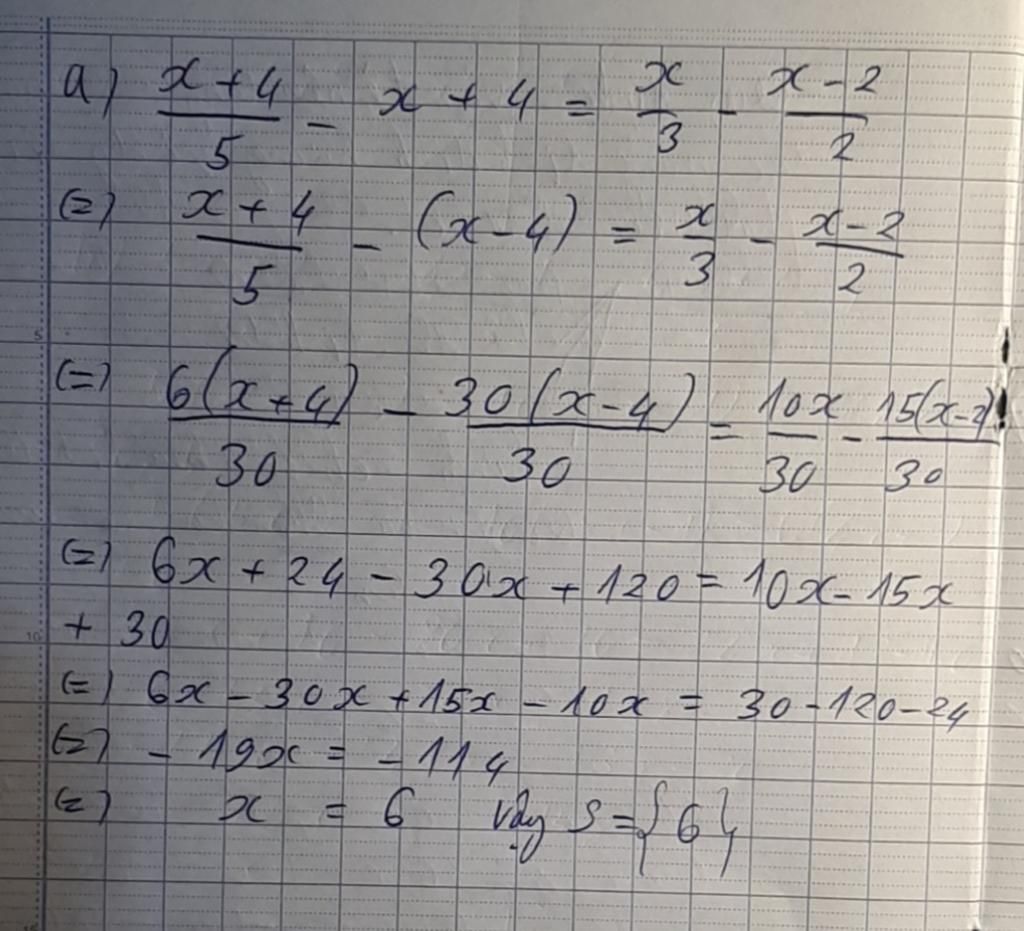 a) \frac{x+4}{5} - x + 4 = \frac{x}{3} - \frac{x-2}{2}
(=) \frac{x+4}{5} - (x-4) = \frac{x}{3} - \frac{x-2}{2}
(=) \frac{6(x+4)}{30} - \frac{30(x-4)}{30} = \frac{10x}{30} - \frac{15(x-2)}{30}
(=) 6x + 24 - 30x + 120 = 10x - 15x
+ 30
(=) 6x - 30x + 15x - 10x = 30 - 120 - 24
(=) - 19x = - 114
(=) x = 6 Vậy S = {6}